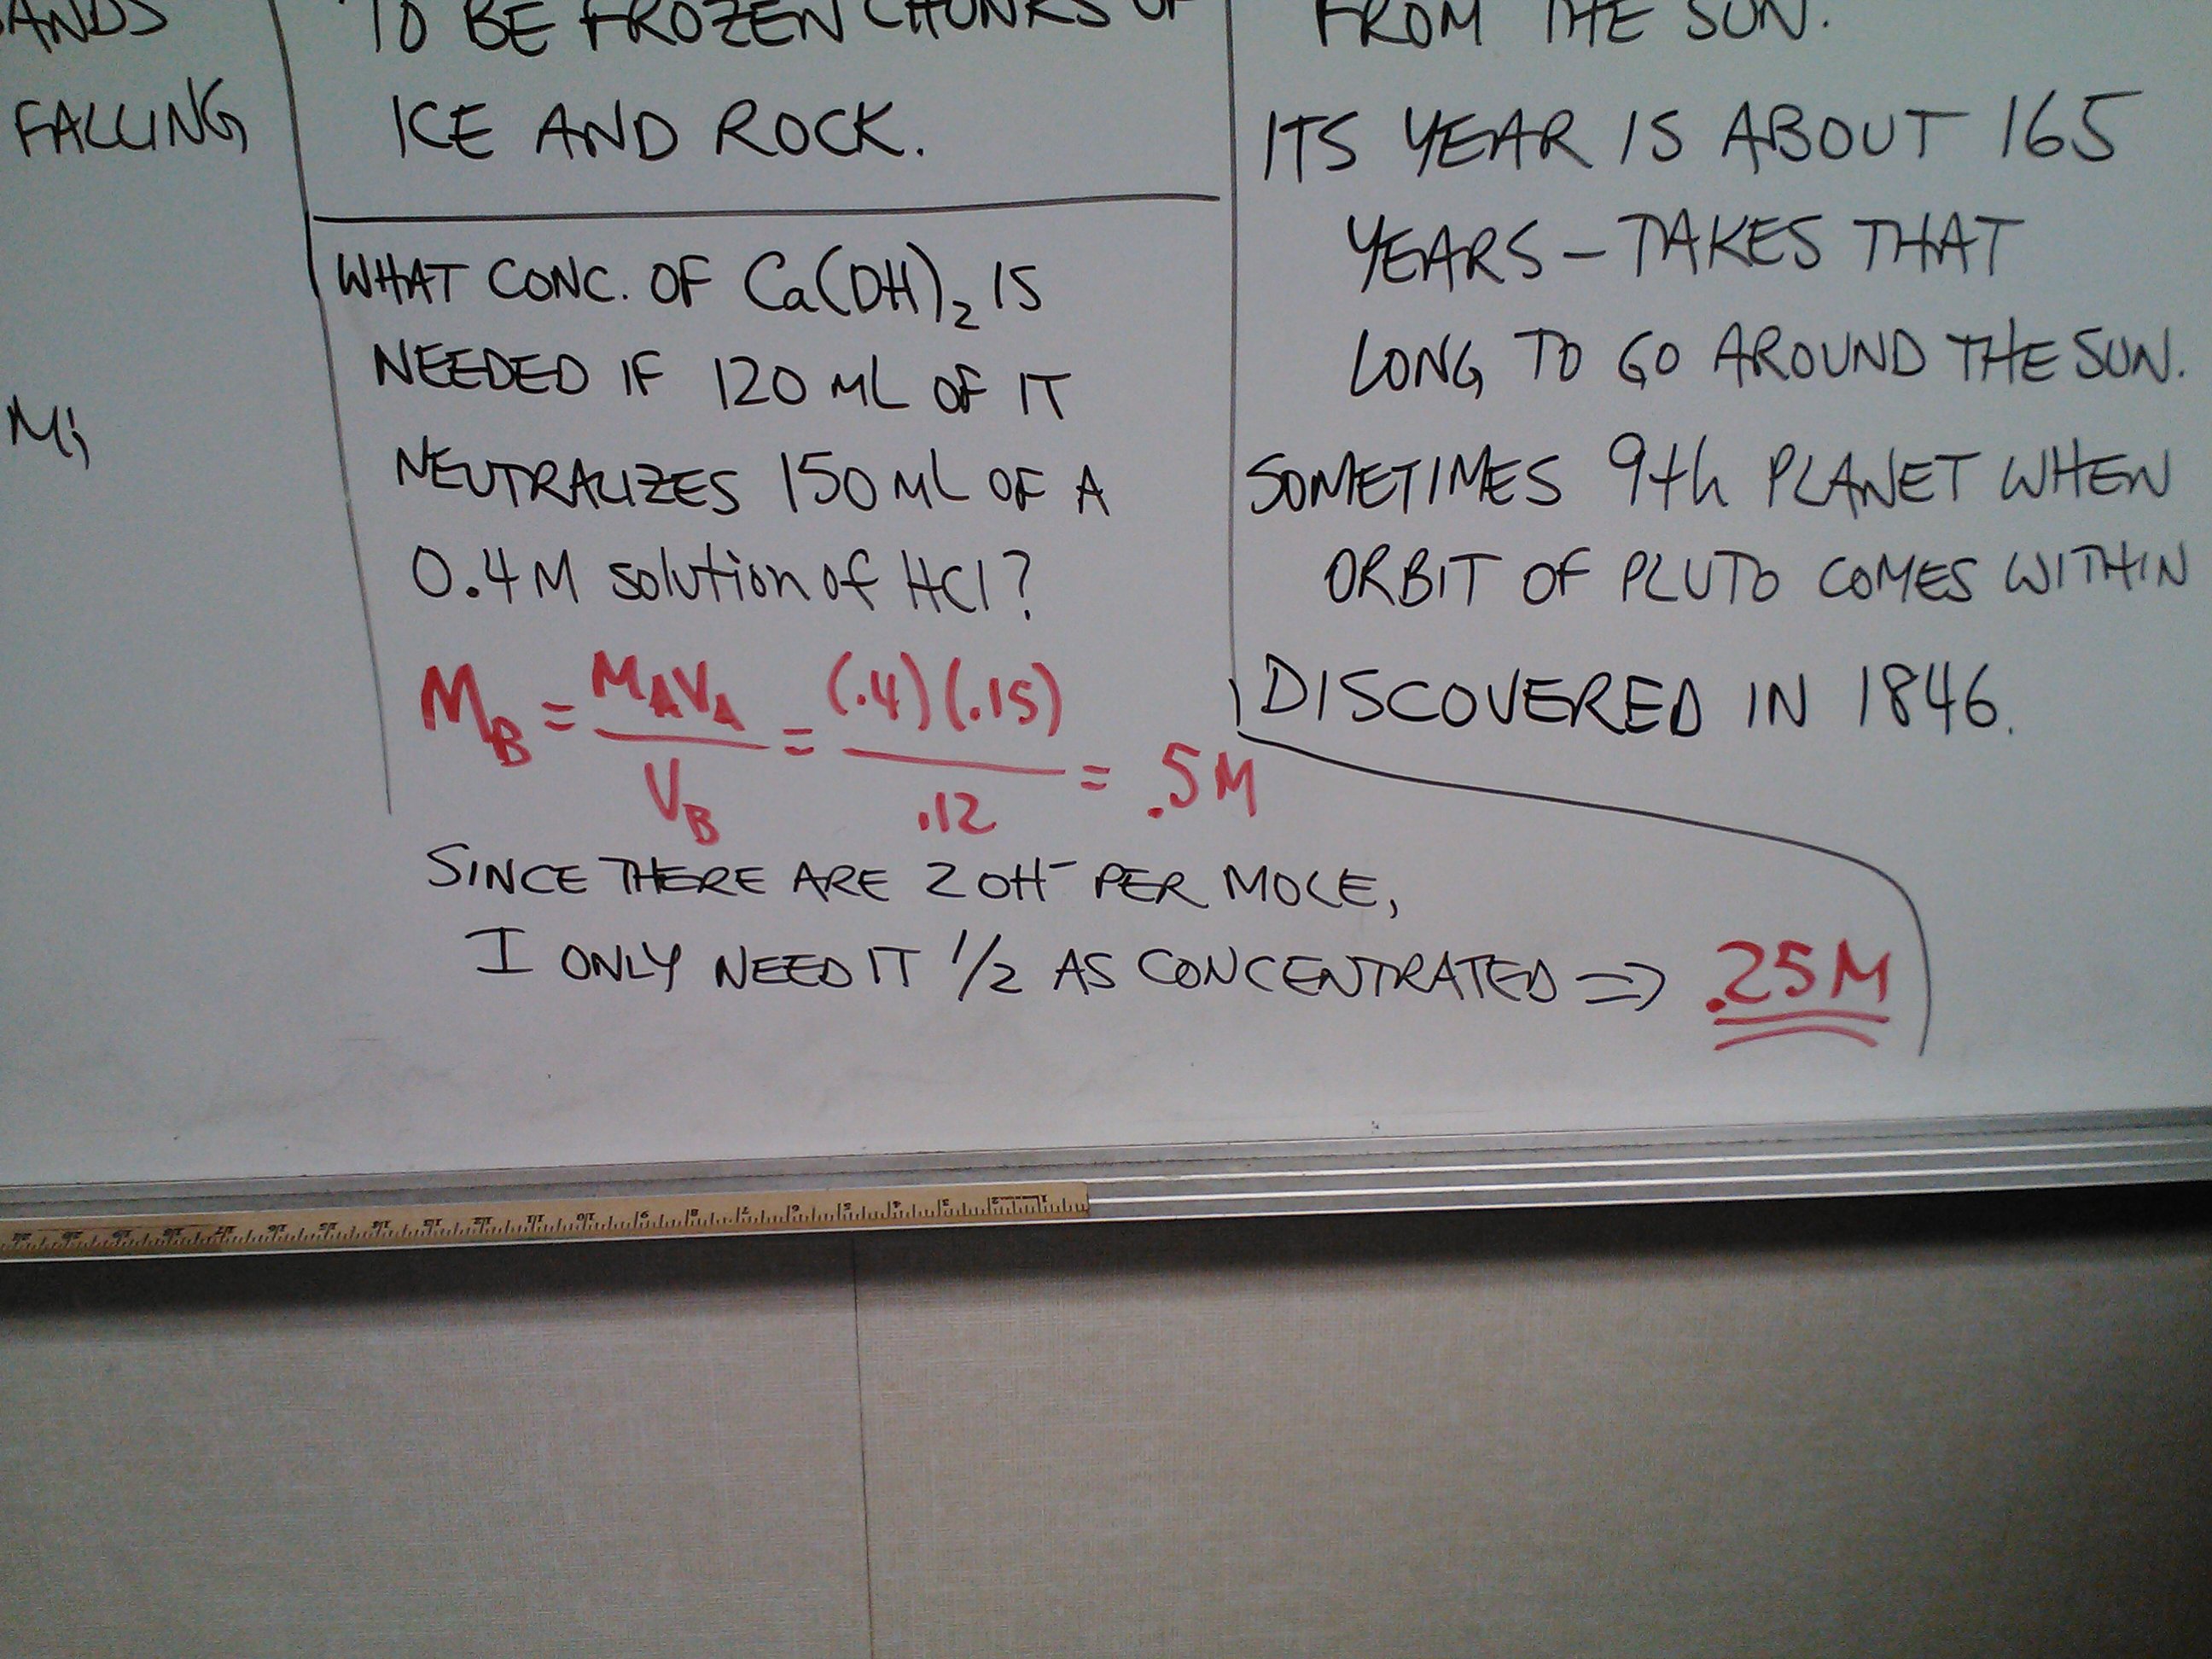 ANDS
FALLING
M;
TO BE FROZEN CHUNKS OF
ICE AND ROCK.
WHAT CONC. OF Ca(OH)₂ IS
NEEDED IF 120 ML OF IT
NEUTRALIZES 150 ML OF A
0.4M solution of HCl?
M_B = M_A V_A / V_B = (.4)(.15) / .12 = .5M
SINCE THERE ARE 2 OH⁻ PER MOLE,
I ONLY NEED IT 1/2 AS CONCENTRATED => .25M
FROM THE SUN.
ITS YEAR IS ABOUT 165
YEARS - TAKES THAT
LONG TO GO AROUND THE SUN.
SOMETIMES 9th PLANET WHEN
ORBIT OF PLUTO COMES WITHIN
DISCOVERED IN 1846.
1 2 3 4 5 6 7 8 9 10 11 12 13 14 15 16 17 18 19 20 21